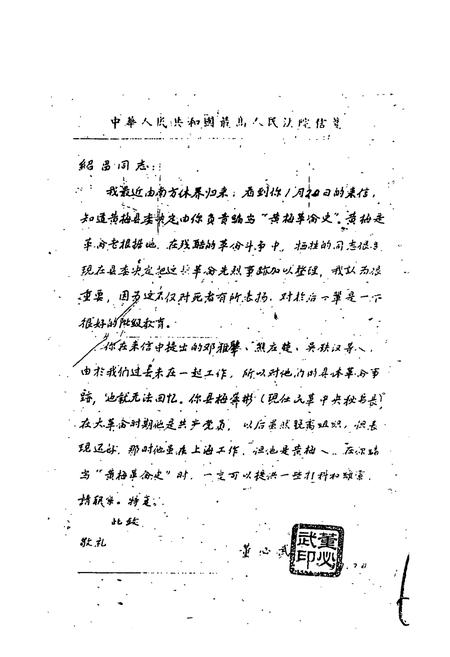 中華人民共和國最高人民法院信箋
紹昌同志:
我最近由南方休养归来,看到你1月20日的来信,
知道黄梅县委决定由你负责编写“黄梅革命史”。黄梅是
革命老根据地,在残酷的革命斗争中,牺牲的同志很多
现在县委决定把这些革命先烈事跡加以整理,我认为很
重要,因为这不仅对死者有所表扬,对於后一辈是一个
很好的阶级教育。
你在来信中提出的邓雅声、熊应楚、吴铁汉等人,
由於我们过去未在一起工作,所以对他们的具体革命事
跡,也就无法回忆。你县梅龚彬(现任民革中央秘书长)
在大革命时期他是共产党员,以后虽然脱离组织,但表
现还好,那时他虽在上海工作,但也是黄梅人,在你编
写“黄梅革命史”时,一定可以提供一些材料和线索,
请联系。特复。
此致
敬礼
董必武
董必武印